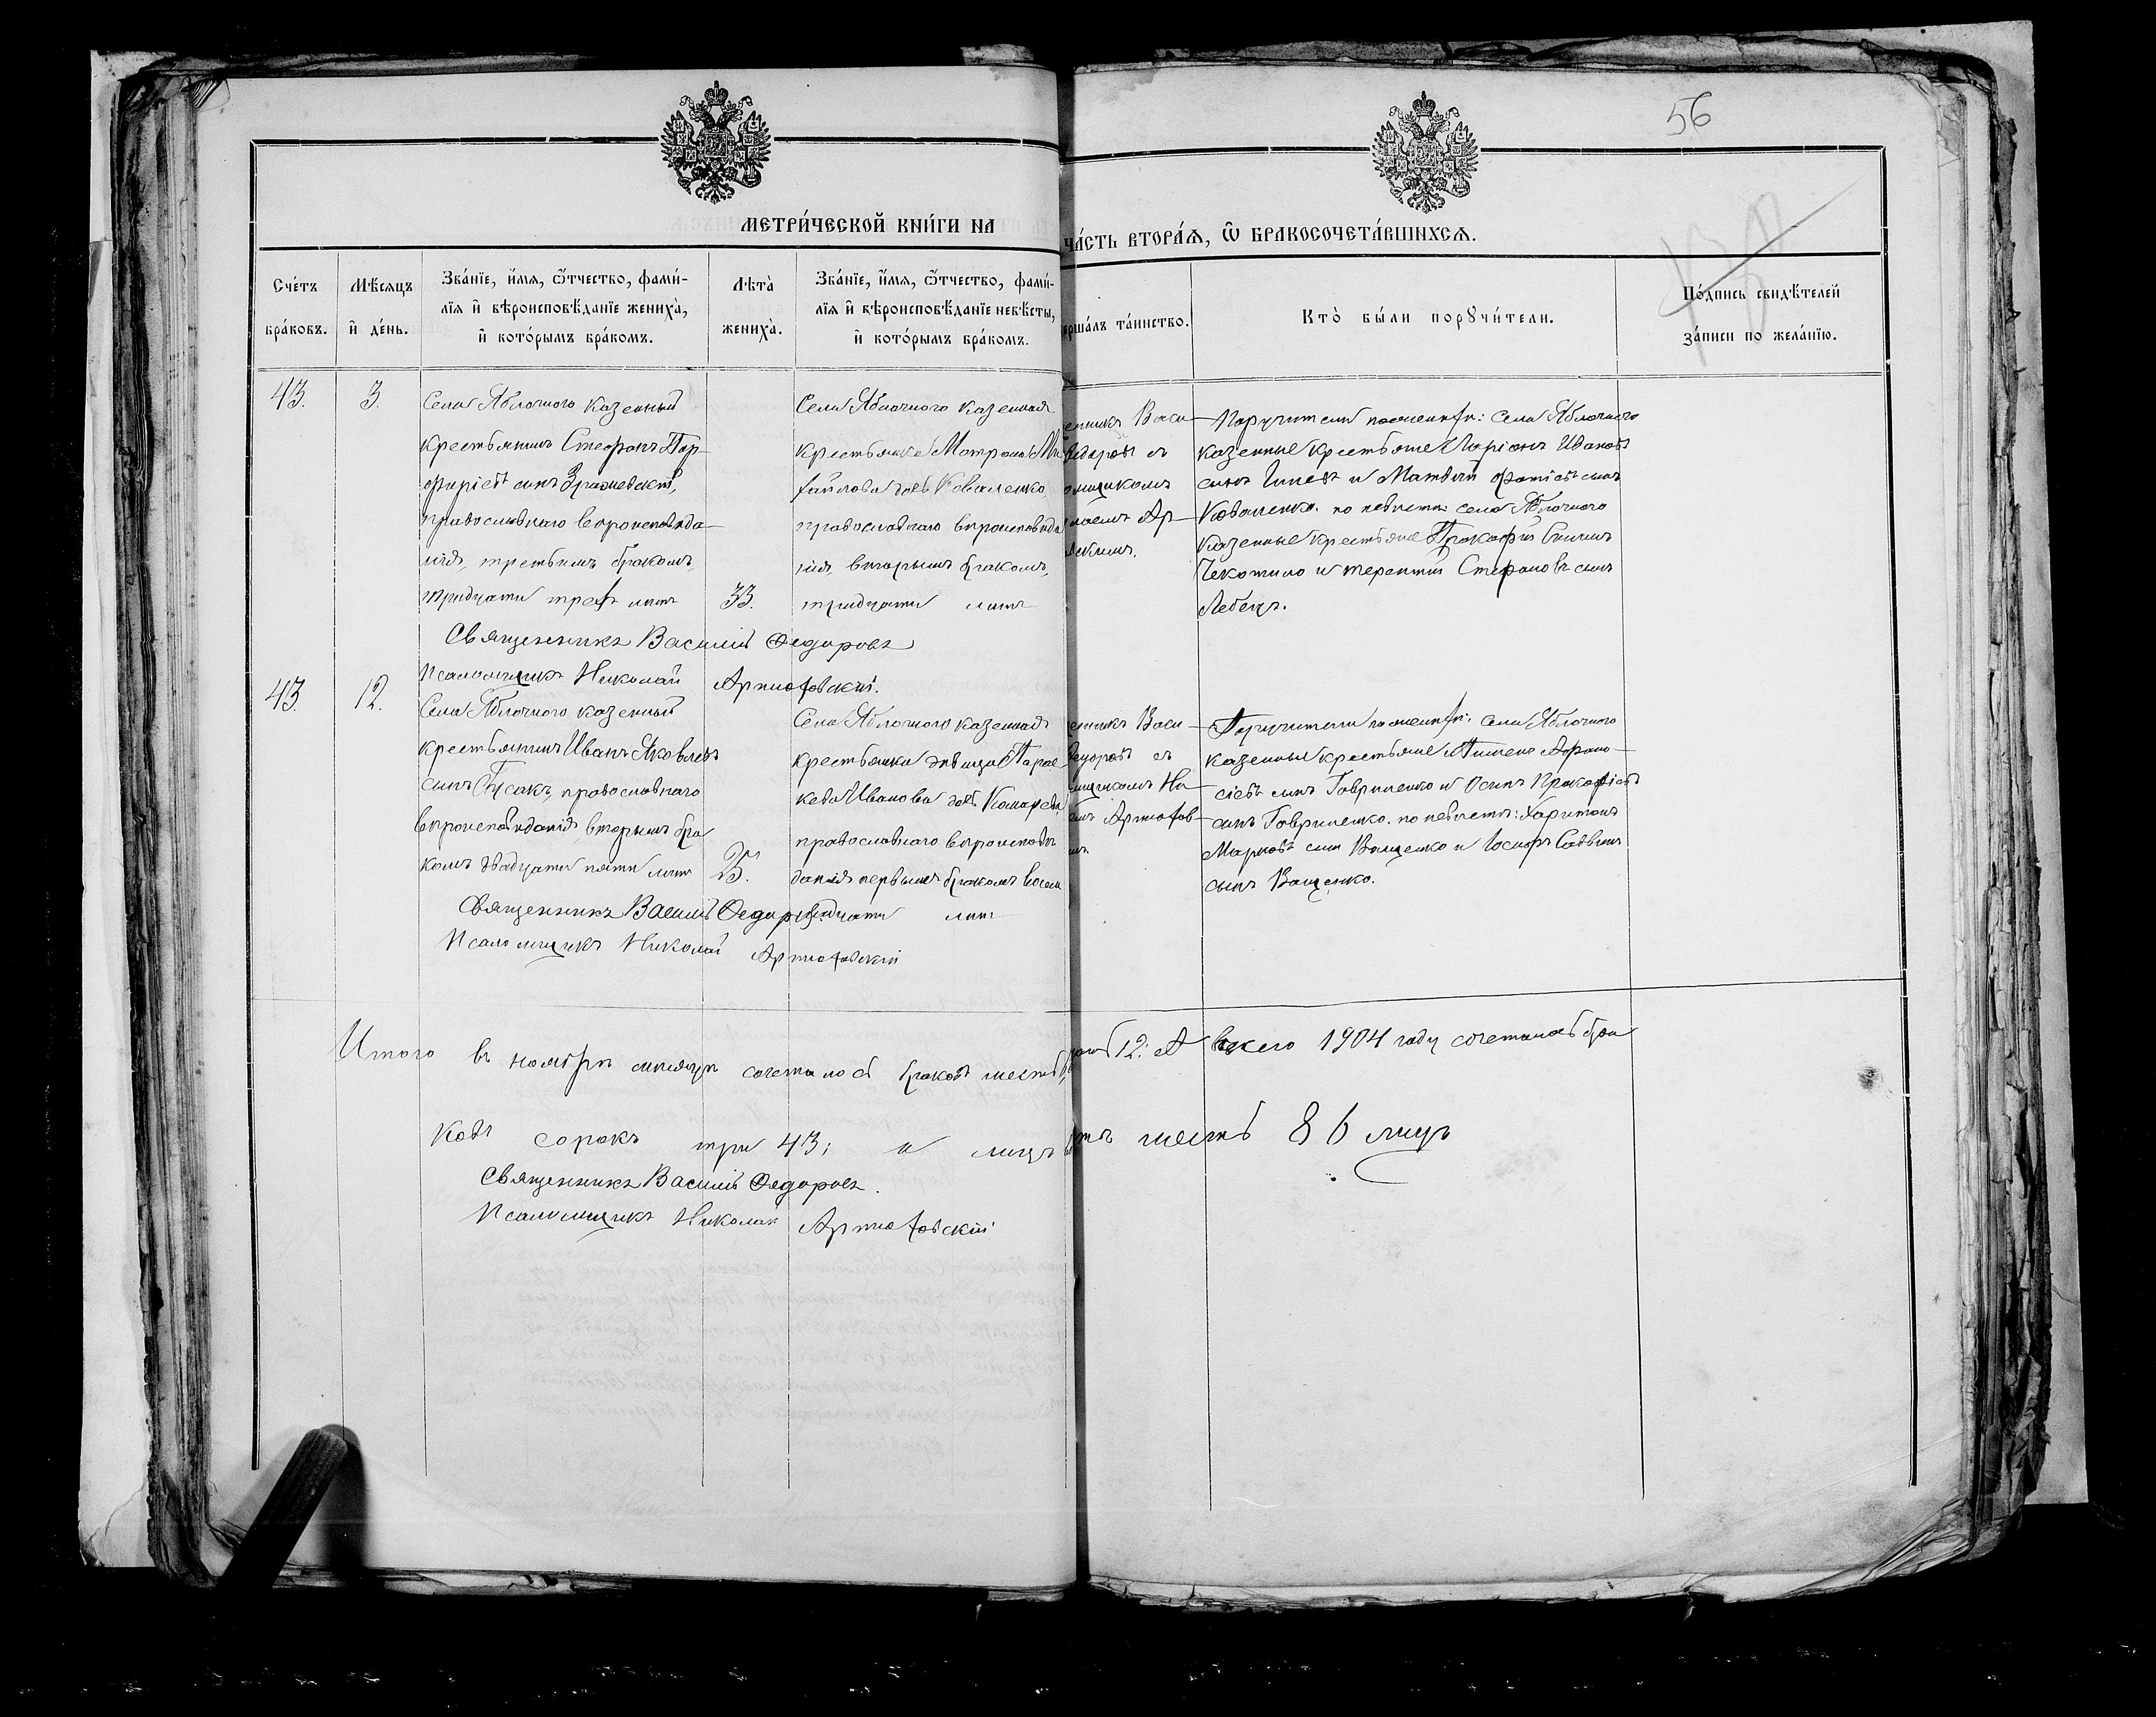 56
МЕТРИ́ЧЕСКОЙ КНИ́ГИ НА
ЧА́СТЬ ВТОРА́Ѧ, Ѿ БРАКОСОЧЕТА́ВШИХСѦ.
Сче́тъ бра́ковъ.
Мѣ́сѧцъ и҆ де́нь.
Зва́нїе, и҆́мѧ, ѻ҆́тчество, фами́-
лїѧ и҆ вѣроисповѣ́данїе жениха̀,
и҆ кото́рымъ бра́комъ.
Лѣта̀ жениха̀.
Зва́нїе, и҆́мѧ, ѻ҆́тчество, фами́-
лїѧ и҆ вѣроисповѣ́данїе невѣ́сты,
и҆ кото́рымъ бра́комъ.
ерша́лъ та́инство.
Кто̀ бы́ли порꙋчи́тели.
По́дпись свидѣ́телей
за́писи по жела́нїю.
43.
3.
Села Яблочного казенный
крестьянинъ Стефанъ Пор-
фиріевъ сынъ
православнаго вѣроисповѣда-
нія, третьимъ бракомъ,
тридцати трехъ лѣтъ
33.
Села Яблочного казенная
крестьянка Матрона Ми
хайлова дочь Коваленко,
православнаго вѣроисповѣда
нія, вторымъ бракомъ,
тридцати лѣтъ
енникъ Васи-
Ѳедоровъ съ
омщикомъ
лаемъ Ар-
вскимъ.
Поручители по женихѣ: села Яблочного
казенные крестьяне Иванов
сынъ и Матвѣй сынъ
Коваленко. по невѣстѣ: села Яблочного
казенные крестьяне Прокофій
Чекотило и Терентій Стефановъ сынъ
Лебедь.
Священникъ Василій Ѳедоровъ
Псаломщикъ Николай Артюховскій.
43.
12.
Села Яблочного казенный
крестьянинъ Иванъ Яковлевъ
сынъ Гусакъ, православнаго
вѣроисповѣданія, вторымъ бра
комъ двадцати пяти лѣтъ
25.
Села Яблочного казенная
крестьянка дѣвица Парас
кева Иванова дочь
православнаго вѣроисповѣ
данія первымъ бракомъ восем
надцати лѣтъ
енникъ Васи-
Ѳедоровъ съ
мщикомъ Ни-
емъ Артюхов-
мъ.
Поручители по женихѣ: села Яблочного
казенные крестьяне Пимен Афана-
сіевъ сынъ Гавриленко и Осипъ Прокофіевъ
сынъ Гавриленко. по невѣстѣ: Харитонъ
Марковъ сынъ Ващенко и Іосифъ Саввинъ
сынъ Ващенко.
Священникъ Василій Ѳедоровъ
Псаломщикъ Николай Артюховскій
Итого въ ноябрѣ мѣсяцѣ сочеталось браковъ шесть 12. А всего 1904 году сочеталось бра
ковъ сорокъ три 43; и лицъ шесть 86 лицъ
Священникъ Василій Ѳедоровъ.
Псаломщикъ Николай Артюховскій